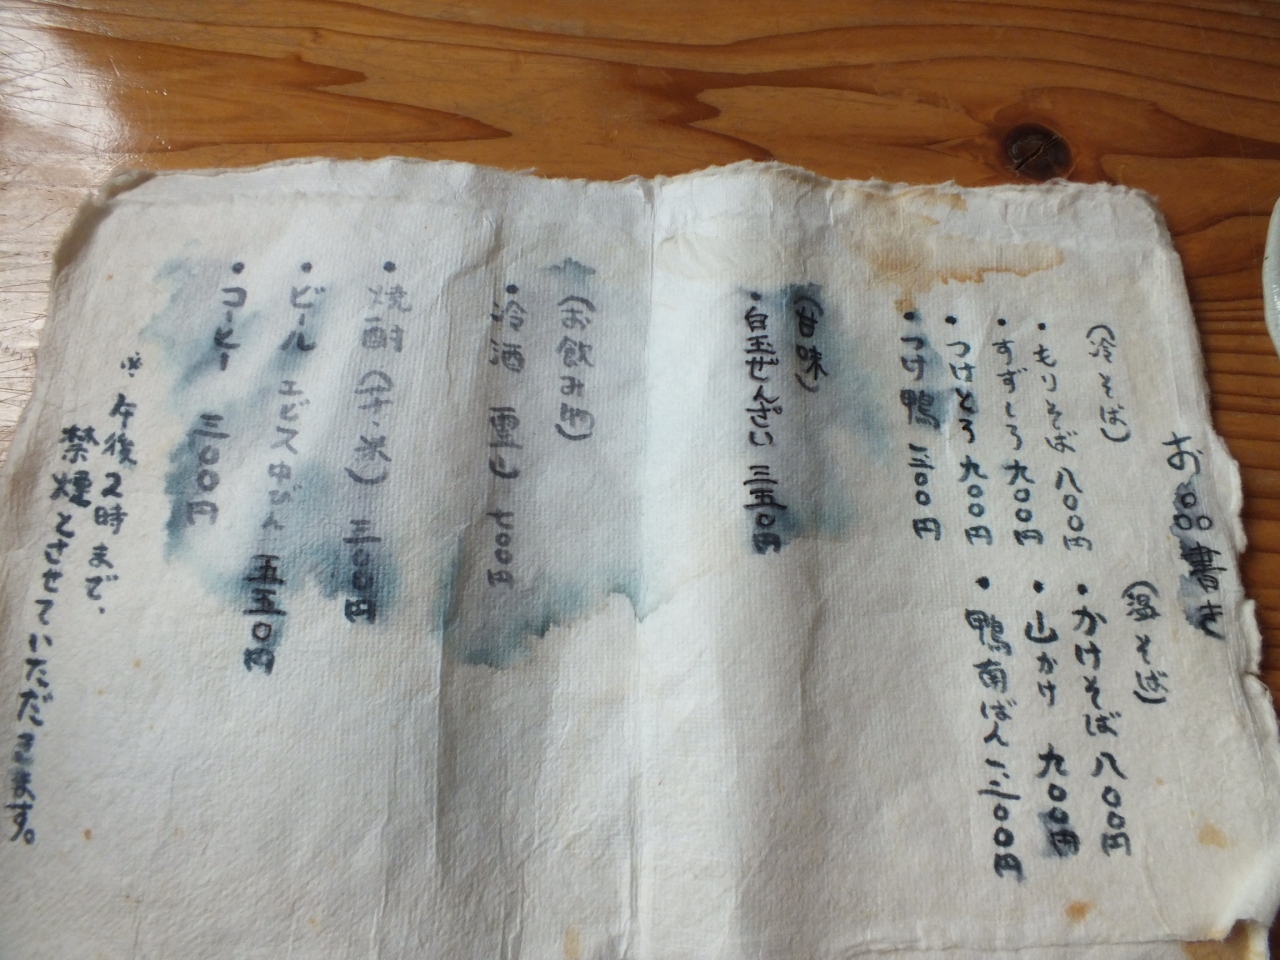 お品書き
(冷そば)
・もりそば 八〇〇円
・すずしろ 九〇〇円
・つけとろ 九〇〇円
・つけ鴨
(温そば)
・かけそば 八〇〇円
・山かけ 九〇〇円
・鴨南ばん 一、二〇〇円
(甘味)
・白玉ぜんざい 三五〇円
(お飲み物)
・冷酒
・焼酎
・ビール エビス中びん 五五〇円
・コーヒー 三〇〇円
※午後2時まで、
禁煙とさせていただきます。